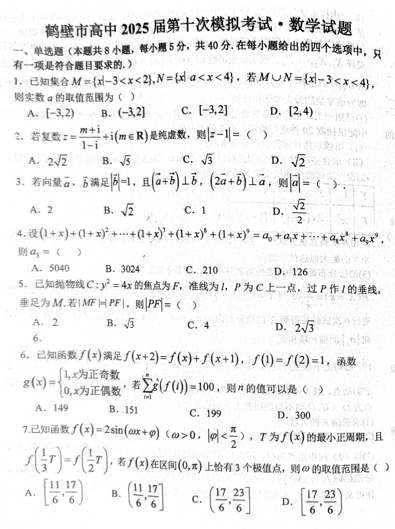 鹤壁市高中 2025 届第十次模拟考试·数学试题
一、单选题（本题共 8 小题，每小题 5 分，共 40 分. 在每小题给出的四个选项中，只
有一项是符合题目要求的.）
1. 已知集合 M={x|-3<x<2}, N={x|a<x<4}，若 M∪N={x|-3<x<4}，
则实数 a 的取值范围为（ ）
A、[-3,2) B、(-3,2] C、[-3,2] D、[2,4)
2. 若复数 z=(m+i)/(1-i)+i(m∈R)是纯虚数，则|z-1|=（ ）
A. 2√2 B. √5 C. √3 D. √2
3. 若向量 a⃗，b⃗ 满足|b⃗|=1，且(a⃗+b⃗)⊥b⃗，(2a⃗+b⃗)⊥a⃗，则|a⃗|=（ ）
A. 2 B. √2 C. 1 D. √2/2
4. 设(1+x)+(1+x)²+⋯+(1+x)⁷+(1+x)⁸+(1+x)⁹=a₀+a₁x+⋯+a₈x⁸+a₉x⁹，
则 a₃=（ ）
A. 5040 B. 3024 C. 210 D. 126
5. 已知抛物线 C:y²=4x 的焦点为 F，准线为 l，P 为 C 上一点，过 P 作 l 的垂线，
垂足为 M.若|MF|=|PF|，则|PF|=（ ）
A. 2 B. √3 C. 4 D. 2√3
6.
6. 已知函数 f(x)满足 f(x+2)=f(x)+f(x+1)，f(1)=f(2)=1，函数
g(x)={1,x为正奇数 0,x为正偶数，若∑ⁿᵢ₌₁g(f(i))=100，则 n 的值可以是（ ）
A. 149 B. 151 C. 199 D. 300
7.已知函数 f(x)=2sin(ωx+φ)（ω>0，|φ|<π/2），T 为 f(x)的最小正周期，且
f(1/3 T)=f(1/2 T)，若 f(x)在区间(0,π)上恰有 3 个极值点，则ω的取值范围是（ ）
A. [11/6,17/6] B. (11/6,17/6] C. (17/6,23/6] D. [17/6,23/6)